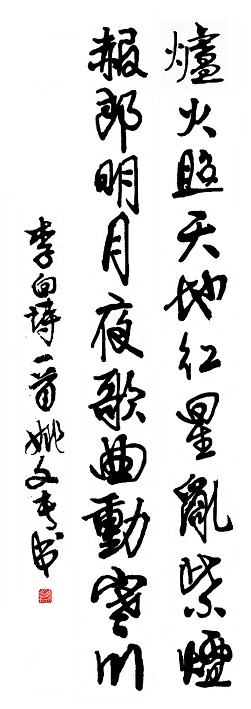 爐火照天地紅星亂紫煙
赧郎明月夜歌曲動寒川
李白詩一首姚文青书